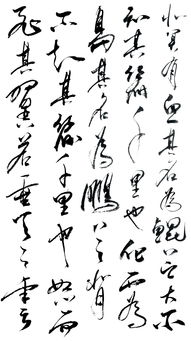 北冥有魚其名為鯤〻之大不
知其幾千里也化而為
鳥其名為鵬〻之背
不知其幾千里也怒而
飛其翼若垂天之雲